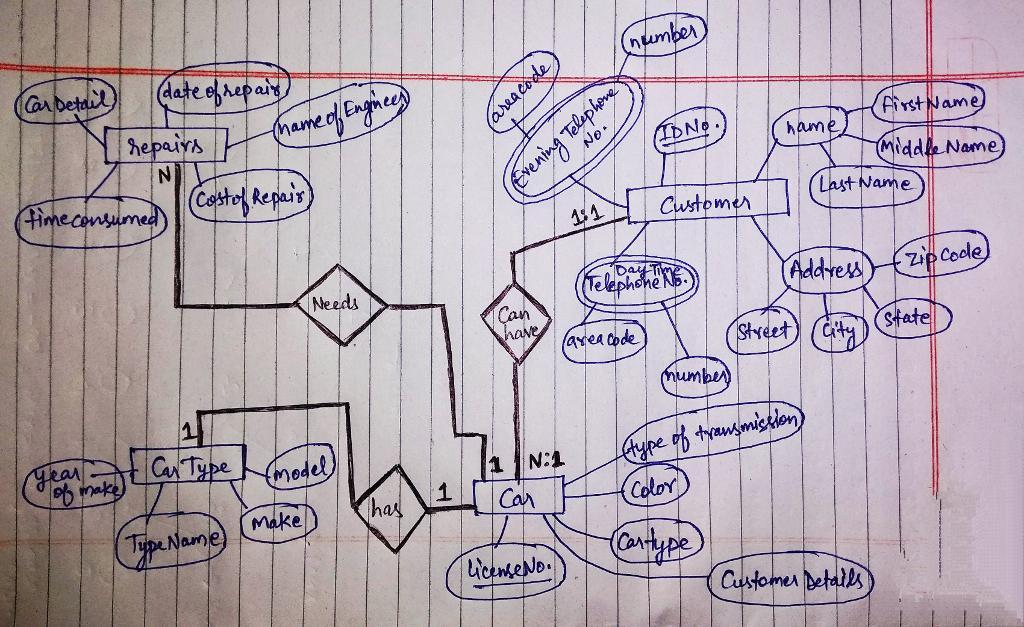 number
areacode
Evening Telephone
No.
IDNo.
name
FirstName
Middle Name
Last Name
Car Detail
date of repair
name of Engineer
repairs
N
Cost of Repair
time consumed
Customer
1:1
Day Time
Telephone No.
areacode
number
Address
Zip Code
Street
City
State
Needs
Can
have
1
Car Type
year
of make
model
make
TypeName
has
1
1
N:1
Car
type of transmission
Color
Cartype
Customer Details
LicenseNo.